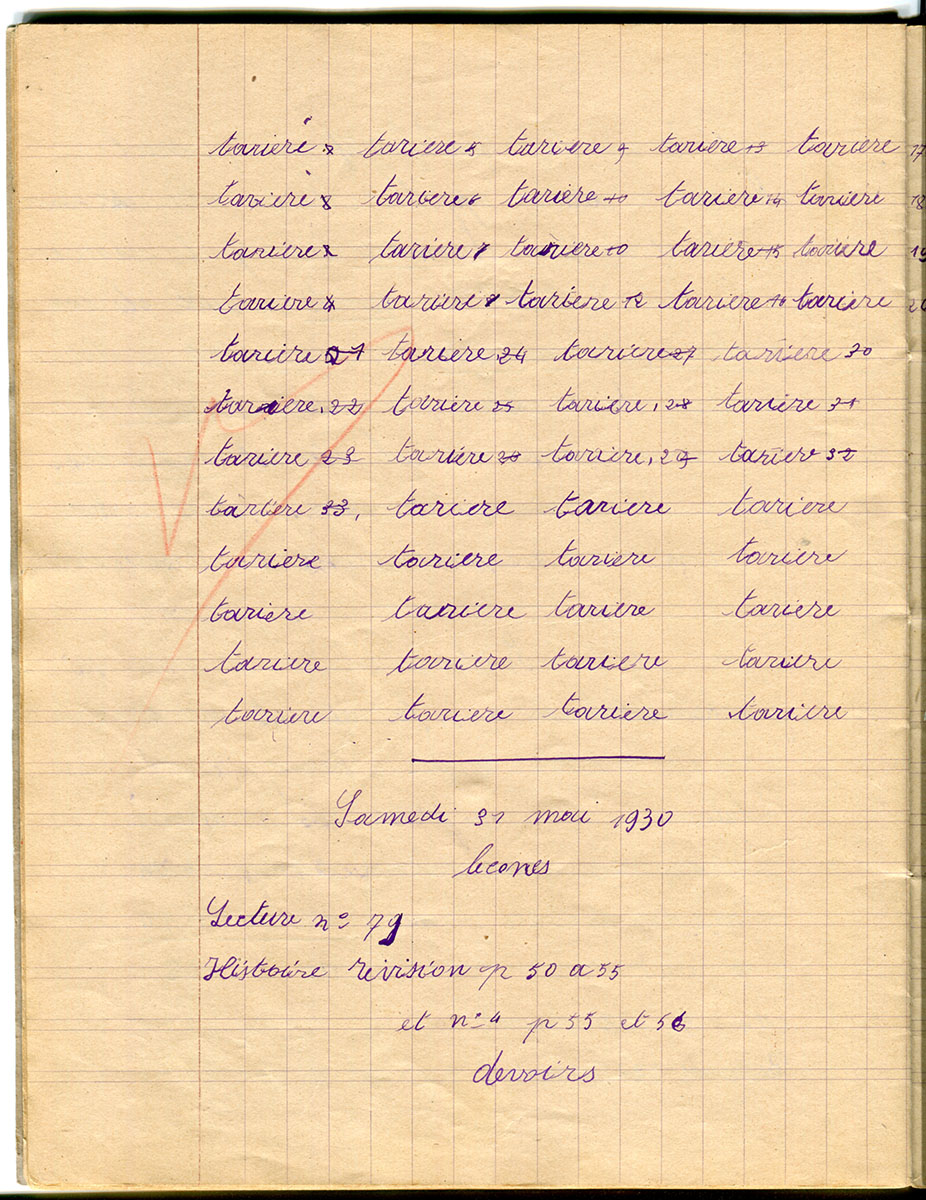 tarière 1 tariere 5 tariere 9 tarière 13 tarière 17
tarière 2 tariere 6 tarière 10 tariere 14 tarière 18
tarière 3 tarière 7 tariere 10 tarière 15 tarière 19
tariere 4 tariere 8 tariere 12 tariere 16 tarière 20
tarière 21 tariere 24 tarière 27 tarière 30
tariere, 22 tarière 25 tarière, 28 tarière 31
tariere 23 tarière 26 tarière, 29 tarière 32
tarière 33, tariere tariere tariere
tarière tariere tarière tariere
tarière tariere tarière tarière
tariere tariere tariere tariere
tariere tariere tarière tarière
Samedi 31 mai 1930
lecones
Lecture n° 79
Histoire revision p 50 a 55
et n° 4 p 55 et 56
devoirs